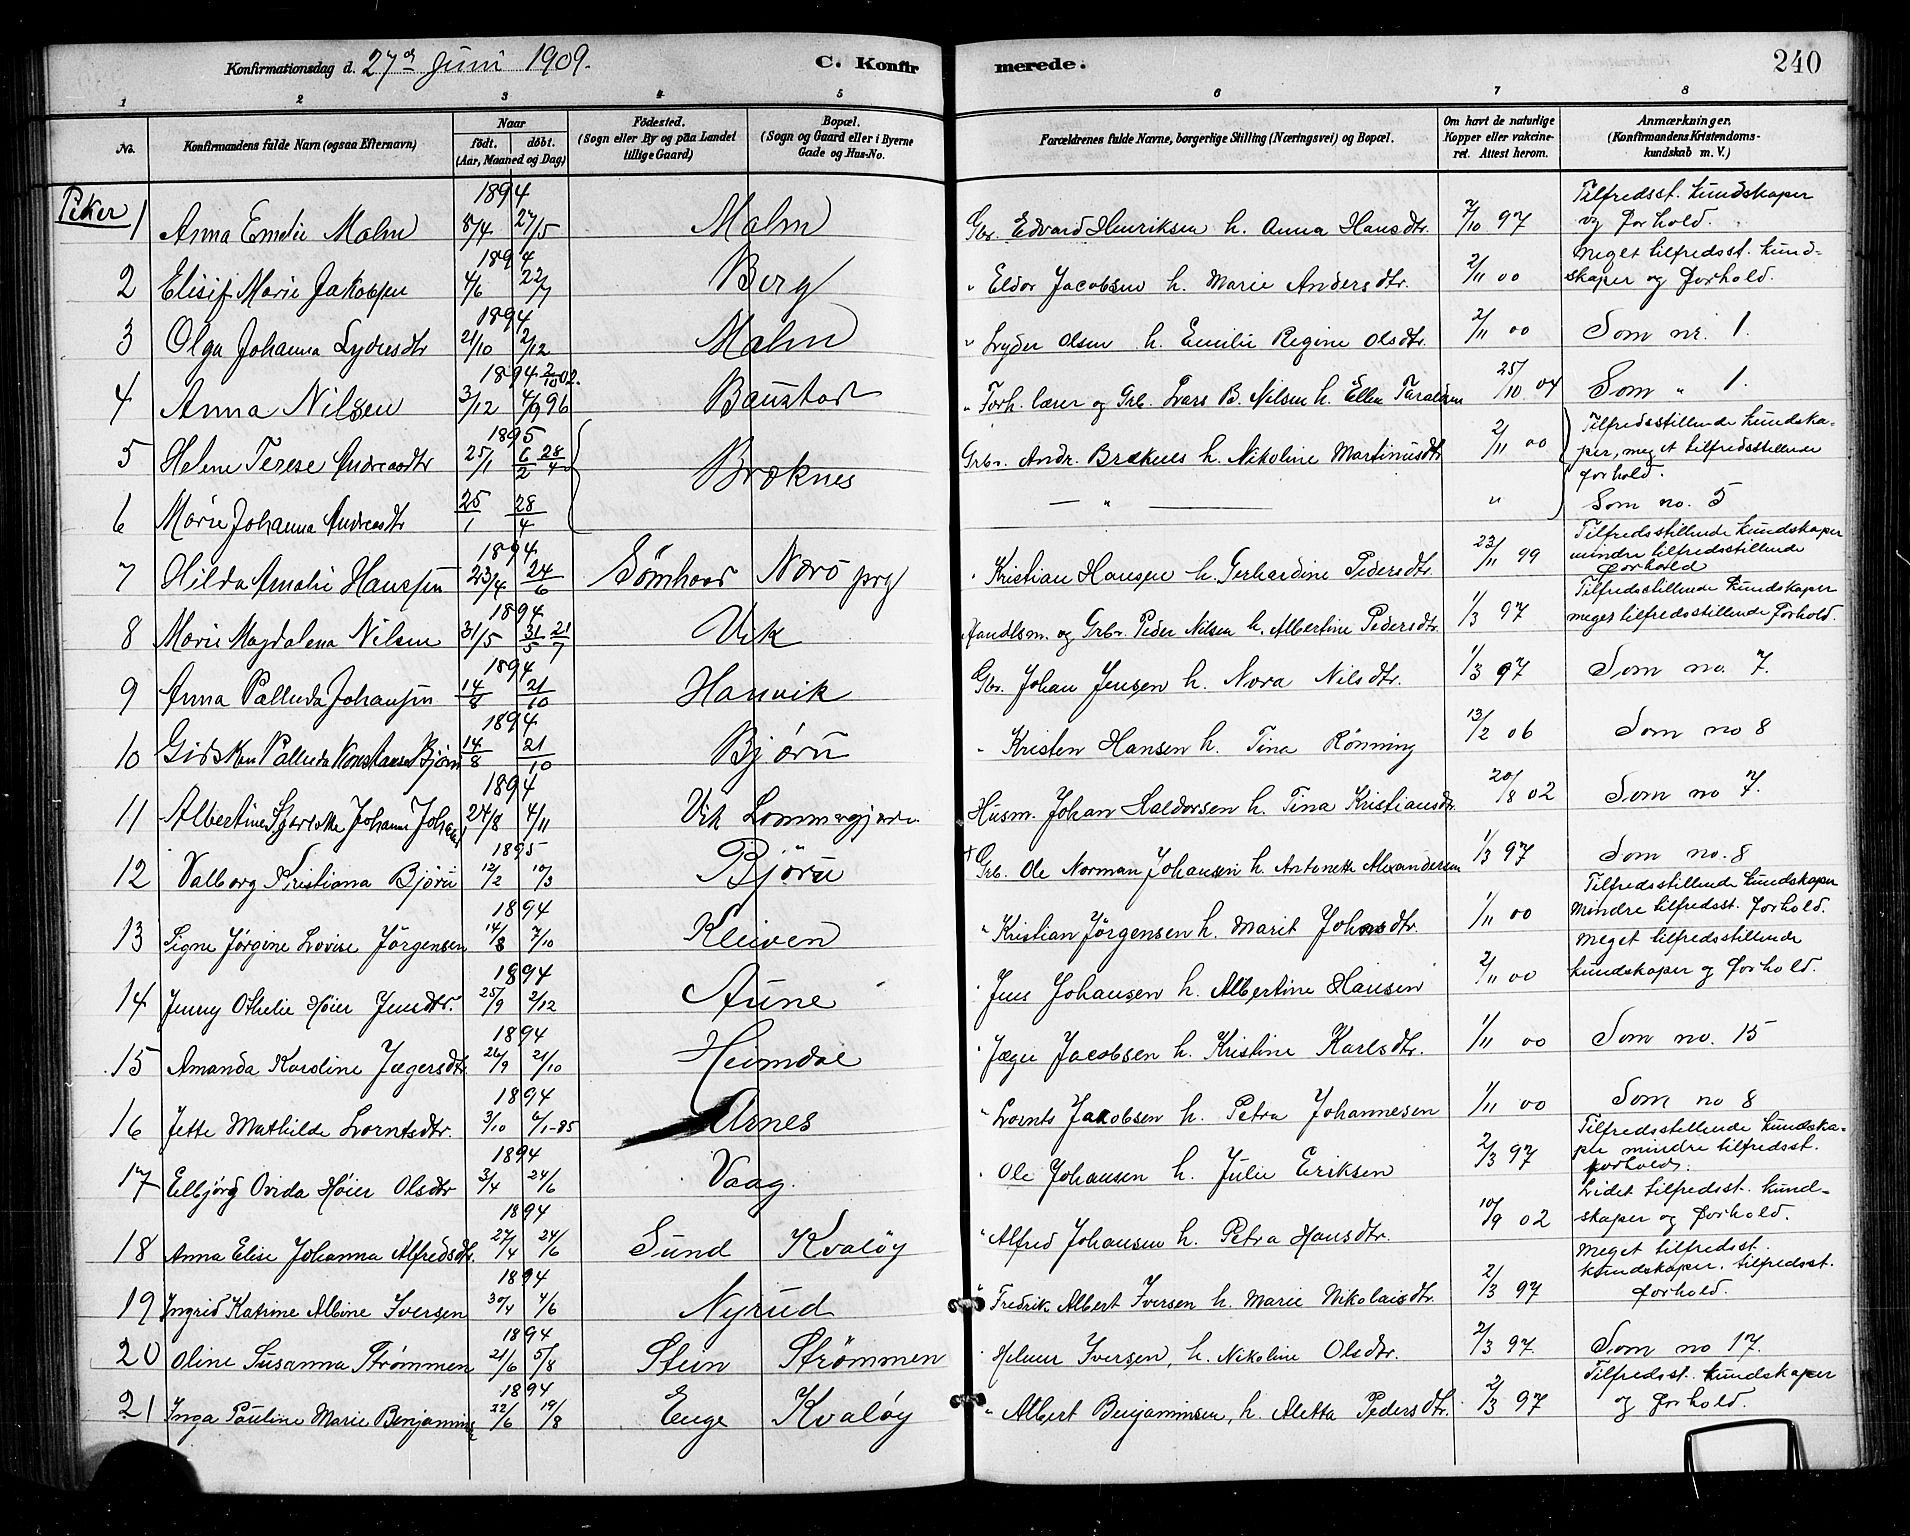 Konfirmationsdag d. 27de Juni 1909. C. Konfirmerede. 240
1 2 3 4 5 6 7 8
No. Konfirmandens fulde Navn (ogsaa Efternavn) Naar født. døbt. (Aar, Maaned og Dag) Fødested. (Sogn eller By og paa Landet tillige Gaard) Bopæl. (Sogn og Gaard eller i Byerne Gade og Hus-No. Forældrenes fulde Navne, borgerlige Stilling (Næringsvei) og Bopæl. Om havt de naturlige Kopper eller vakcineret. Attest herom. Anmærkninger. (Konfirmandens Kristendomskundskab m. V.)
Piker
1 Anna Emelie Malm 1894 8/4 27/5 Malm Gbr. Edvard Henriksen h. Anna Hansdtr. 7/10 97 Tilfredsst. kundskaper og forhold.
2 Elisif Marie Jakobsen 1894 4/6 22/7 Berg " Eldor Jacobsen h. Marie Andersdtr. 2/11 00 Meget tilfredsst. kundskaper og forhold.
3 Olga Johanna Lydersdtr 1894 21/10 2/12 Malm " Lyder Olsen h. Emilie Regine Olsdtr. 2/11 00 Som nr. 1.
4 Anna Nilsen 1894 3/12 4/9 96 2/10 02. Baustad " Forh. lærer og Grb. Lars B. Nilsen h. Ellen Taraldsen 25/10 04 Som " 1.
5 Helene Terese Andreasdtr 1895 25/1 6/2 28/4 Brøknes Grbr. Andr. Brøknes h. Nikoline Martinusdtr 2/11 00 Tilfredsstillende kundskaper, meget tilfredsstillende forhold.
6 Marie Johanna Andreasdtr 25/1 28/4 — " — " Som no. 5
7 Hilda Amalie Hanssen 1894 23/4 24/6 Sømhovd Nærø prg " Kristian Hansen h. Gerhardine Pedersdtr. 23/11 99 Tilfredsstillende kundskaper mindre tilfredsstillende forhold
8 Marie Magdalena Nilsen 1894 31/5 31/5 21/7 Vik Handlsm. og Grbr. Peder Nilsen h. Albertine Pedersdtr. 1/3 97 Tilfredsstillende kundskaper meget tilfredsstillende forhold.
9 Anna Pallude Johansen 14/8 21/10 Hanvik Gbr. Johan Jensen h. Nora Nilsdtr. 1/3 97 Som no. 7.
10 Gidsken Pallude Konstanse Bjørü 1894 14/8 21/10 Bjørü " Kristen Hansen h. Tina Rönning 13/2 06 Som no 8
11 Albertine Johanne 1894 24/8 4/11 Vik Husm. Johan Haldorsen h. Tina Kristiansdtr. 20/8 02 Som no 7.
12 Valborg Kristiana Bjørü 1895 12/2 10/3 Bjørü Grb. Ole Norman Johansen h. Antonette Alexandersen 1/3 97 Som no. 8
13 Signe Jørgine Lovise Jørgensen 1894 14/8 7/10 Kleiven " Kristian Jörgensen h. Marit Johnsdtr. 1/11 00 Tilfredsstillende kundskaper Mindre tilfredsst. forhold.
14 Jenny Othelie Høier Jensdtr. 1894 25/9 2/12 Aune " Jens Johansen h. Albertine Hansen 2/11 00 Meget tilfredsstillende kundskaper og forhold.
15 Amanda Karoline Jægersdtr 1894 26/9 21/10 Heimdal " Jæger Jacobsen h. Kristine Karlsdtr. 1/11 00 Som no. 15
16 Jette Mathilde Lorntsdtr. 1894 3/10 6/1-85 Arnes " Lornts Jakobsen h. Petra Johannesen 1/11 00 Som no 8
17 Elbjörg Ovida Høier Olsdtr 1894 3/4 24/6 Vaag. " Ole Johansen h. Julie Eriksen 2/3 97 Tilfredsstillende kundskaper mindre tilfredsst. forhold.
18 Anna Elise Johanna Alfredsdtr. 1894 27/4 24/6 Sund Kvaløy " Alfred Johansen h. Petra Hansdtr. 10/9 02 Lidet tilfredsst. kundskaper og forhold.
19 Ingrid Katrine Albine Iversen 1894 30/4 4/6 Nyrud " Fredrik Albert Iversen h. Marie Nikolaisdtr. 2/3 97 Meget tilfredsst. kundskaper. tilfredsst. forhold.
20 Oline Susanna Strømmen 1894 21/6 5/8 Stein Strömmen " Helmer Iversen, h. Nikoline Olsdtr. 2/3 97 Som no 17.
21 Inga Pauline Marie Benjaminsen 1894 22/6 19/8 Enge Kvaløy " Albert Benjaminsen, h. Aletta Pedersdtr. 2/3 97 Tilfredsst. kundskaper og forhold.